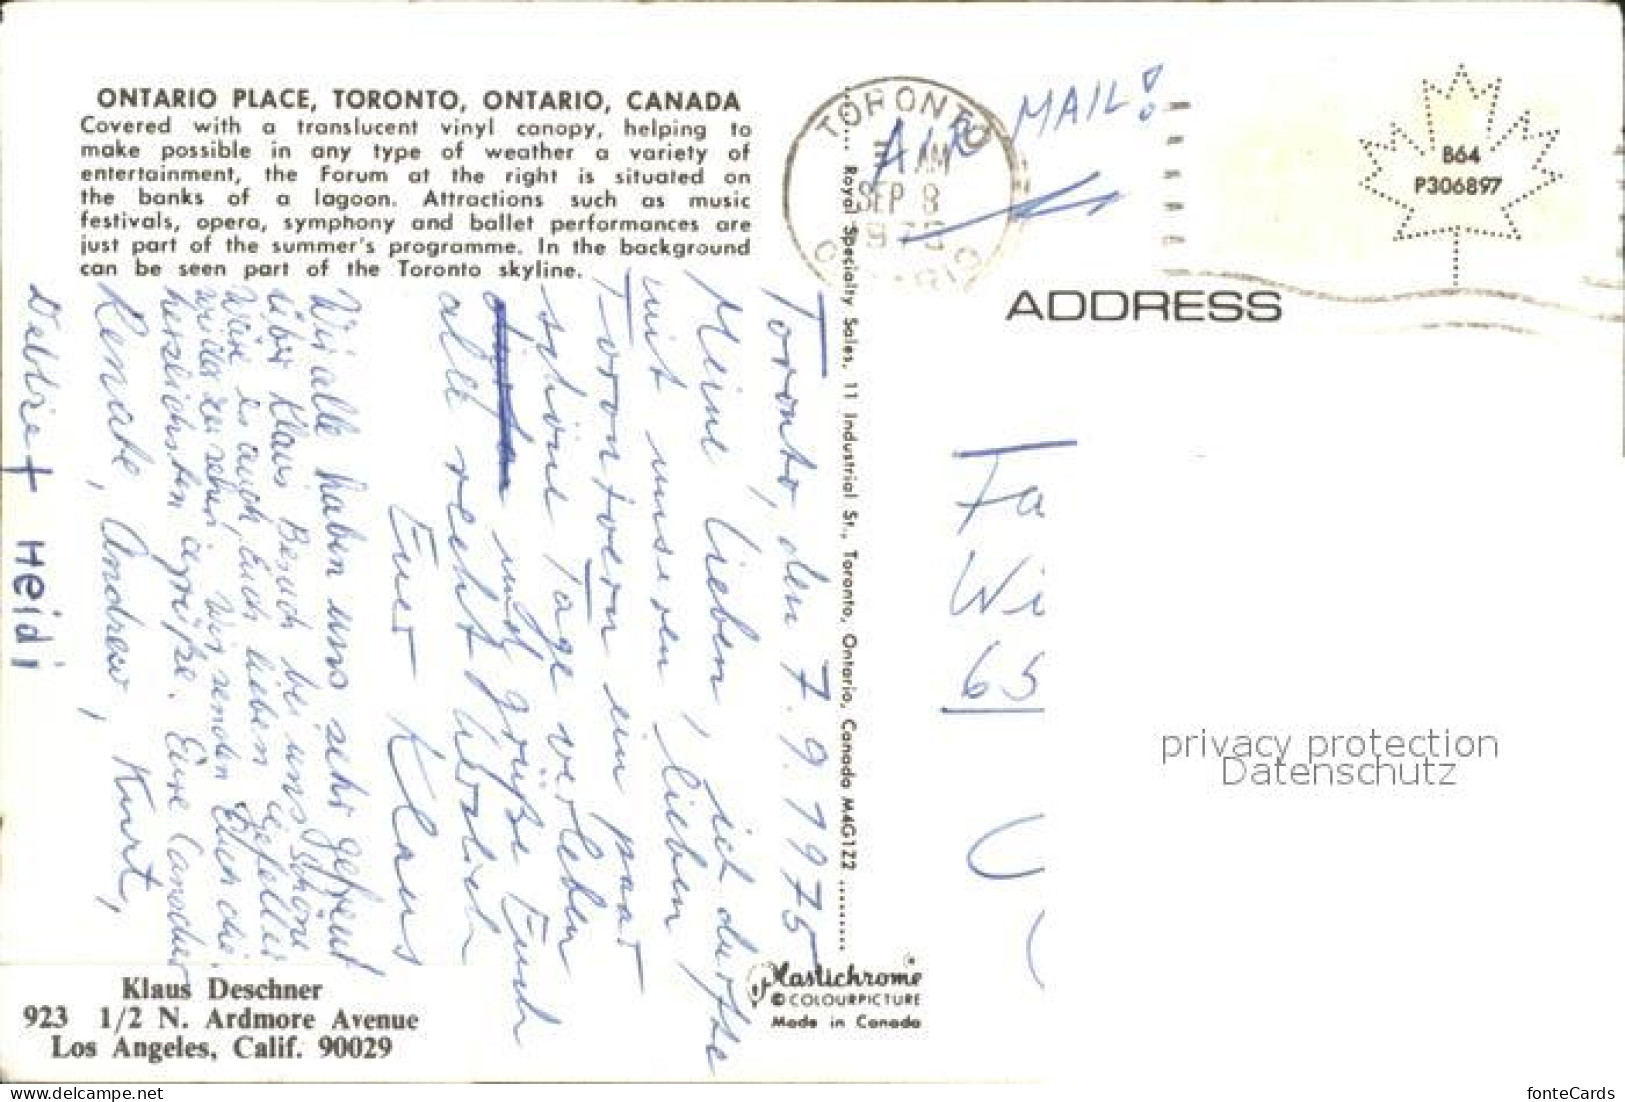 ONTARIO PLACE, TORONTO, ONTARIO, CANADA
Covered with a translucent vinyl canopy, helping to
make possible in any type of weather a variety of
entertainment, the Forum at the right is situated on
the banks of a lagoon. Attractions such as music
festivals, opera, symphony and ballet performances are
just part of the summer's programme. In the background
can be seen part of the Toronto skyline.
Toronto, den 7.9.1975
Meine Lieben, ich durfte
mit unseren lieben
Torontoern ein paar
schöne Tage verleben
und grüße Euch
alle recht herzlich
Euer Klaus
Wir alle haben uns sehr gefreut
über Klaus Besuch bei uns. Schöne
wäre es auch, Euch lieben
wieder zu sehen. Wir senden Euch die
herzlichsten Grüße. Eure
Renate, Andrew, Kurt,
Debbie + Heidi
Klaus Deschner
923 1/2 N. Ardmore Avenue
Los Angeles, Calif. 90029
Royal Specialty Sales, 11 Industrial St., Toronto, Ontario, Canada M4G1Z2
Plastichrome
© COLOURPICTURE
Made in Canada
TORONTO
AM
SEP 8
ONTARIO
AIR MAIL!
B64
P306897
ADDRESS
Fa
Wi
65
privacy protection
Datenschutz
http://www.ansichtskarten-center.de
fonteCards